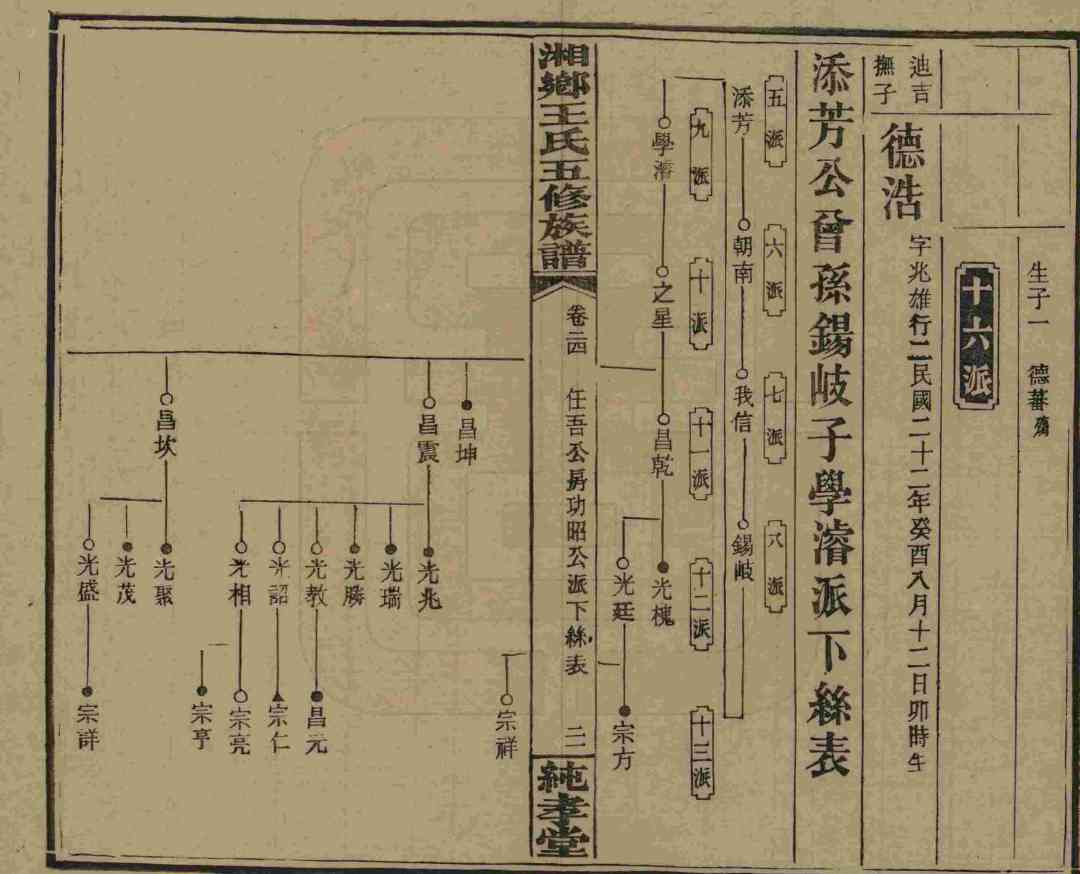 生子一　德蕃殤
十六派
迪吉
撫子
德浩
字兆雄行二民國二十二年癸酉八月十二日卯時生
添芳公曾孫錫岐子學濬派下絲表
五派
六派
七派
八派
添芳
朝南
我信
錫岐
九派
十派
十一派
十二派
十三派
學濬
之星
昌乾
光槐
光廷
宗方
湘鄉王氏五修族譜
卷二四
任吾公房功昭公派下絲表
二二
純孝堂
宗祥
昌坤
昌震
光兆
光瑞
光勝
光教
昌元
光詔
宗仁
光相
宗亮
宗亨
昌坎
光聚
光茂
光盛
宗詳